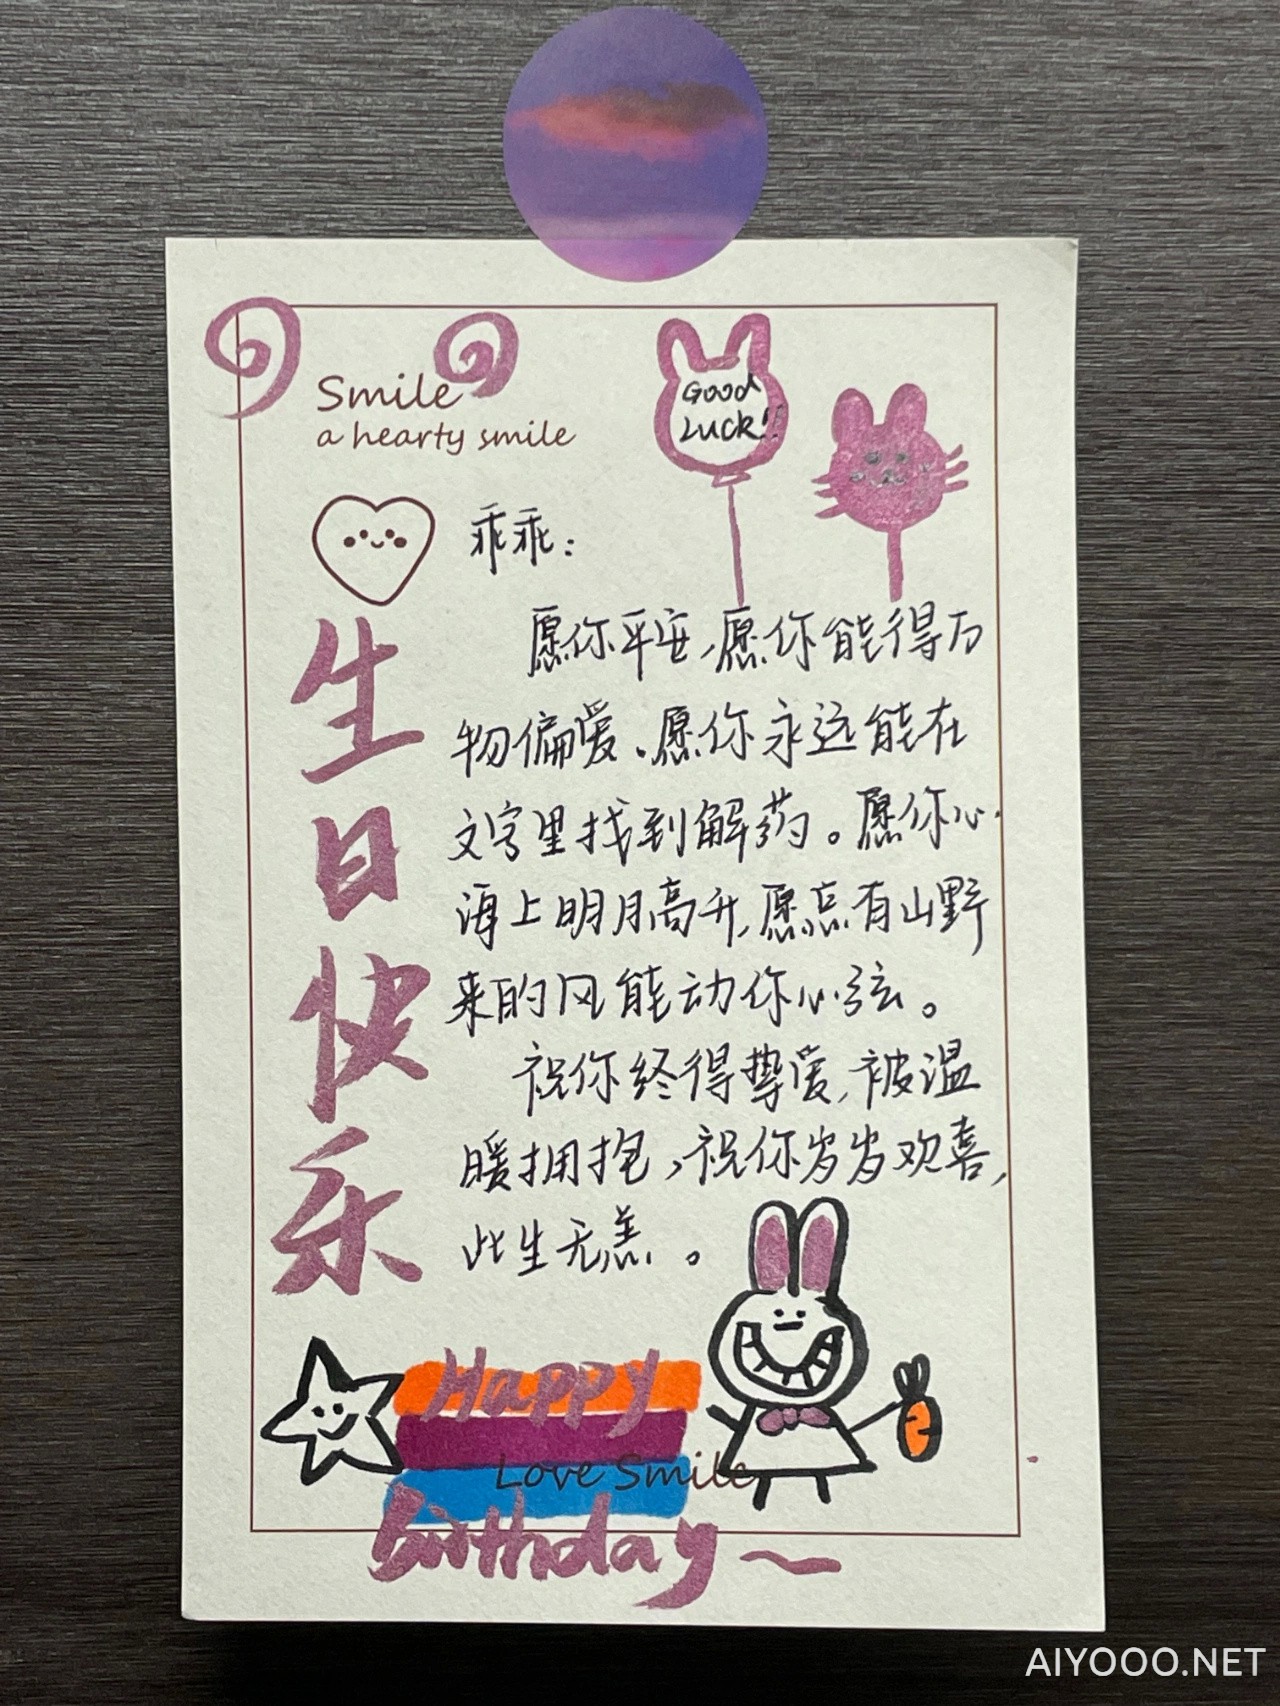 Smile
a hearty smile
Good
Luck!!
乖乖：
愿你平安，愿你能得万
物偏爱．愿你永远能在
文字里找到解药。愿你心
海上明月高升，愿总有山野
来的风能动你心弦。
祝你终得挚爱，被温
暖拥抱，祝你岁岁欢喜，
此生无恙。
生日快乐
Happy
Love Smile
Birthday~
AIYOOO.NET